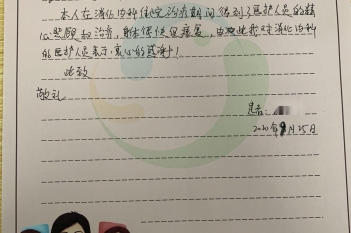 本人在消化内科住院治疗期间得到了医护人员的精
心照顾和治疗,身体得快速康复,由此我对消化内科
的医护人员表示衷心的感谢!
此致
敬礼
患者:
2020年9月25日